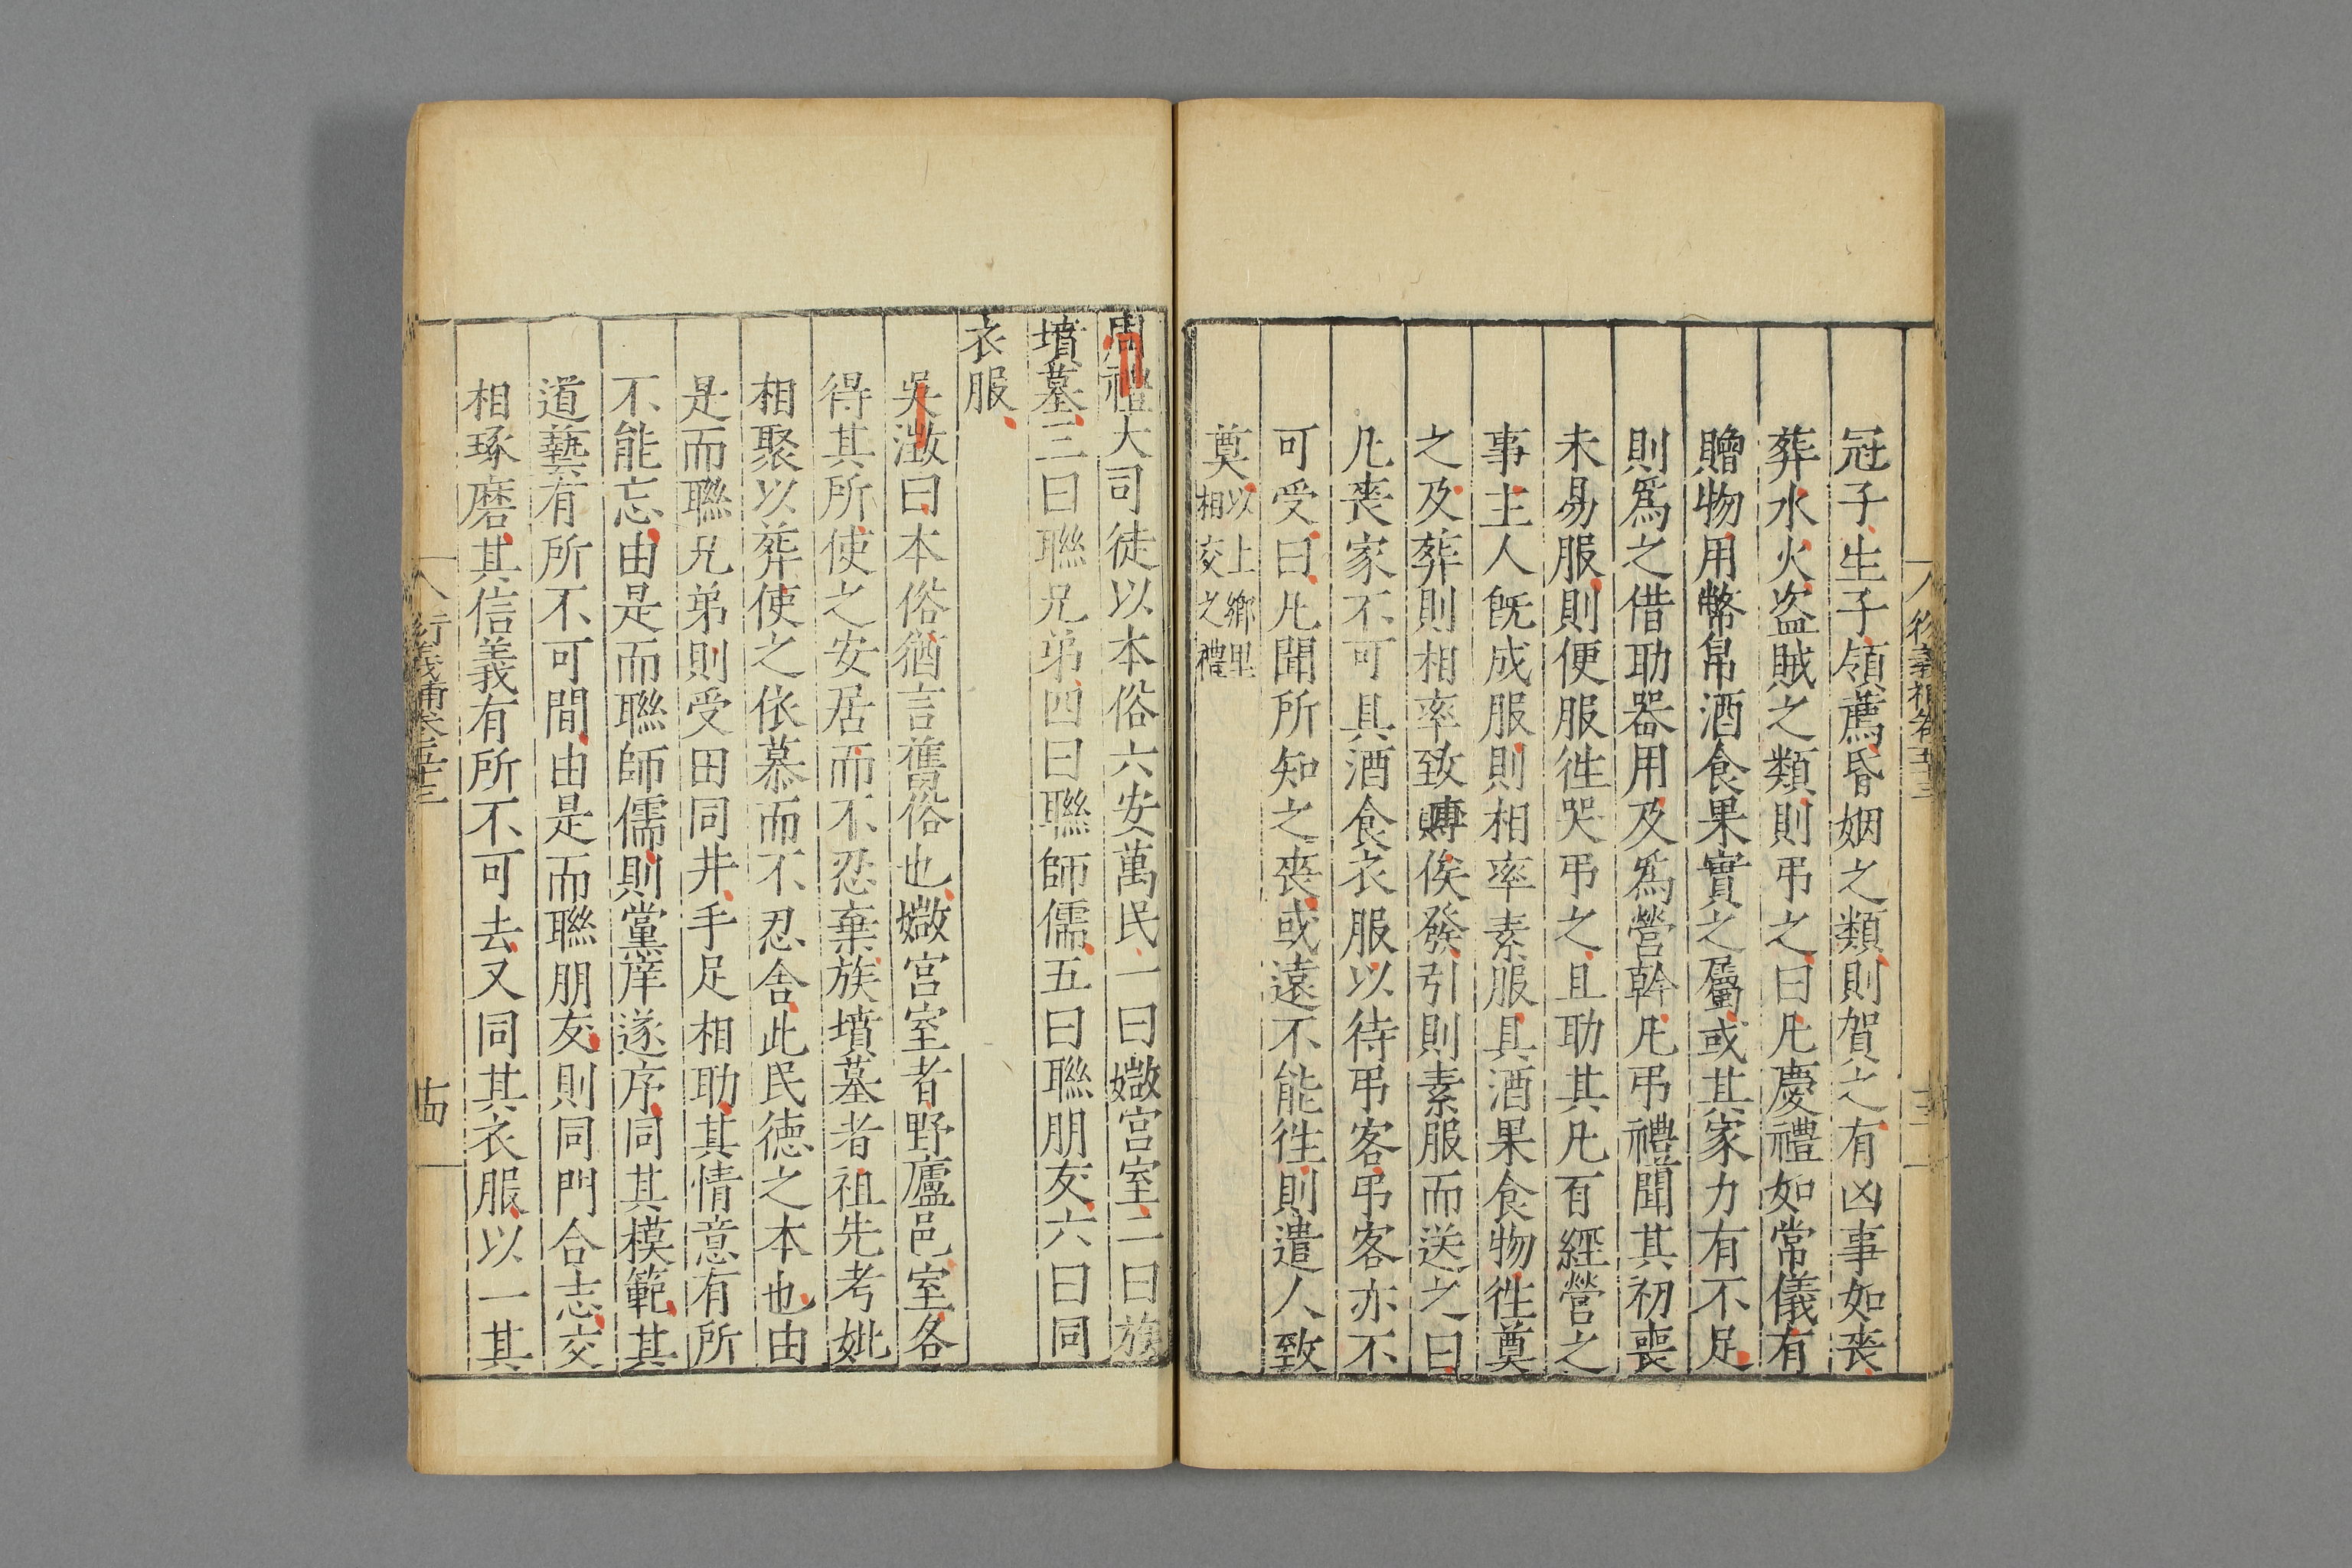 冠子生子領薦昏姻之類則賀之有凶事如丧
葬水火盗賊之類則弔之曰凡慶禮如常儀有
贈物用幣帛酒食果實之屬或其家力有不足
則爲之借助器用及爲營幹凡弔禮聞其初喪
未易服則便服徃哭弔之且助其凡百經營之
事主人旣成服則相率素服具酒果食物徃奠
之及葬則相率致賻俟發引則素服而送之曰
凡丧家不可具酒食衣服以待弔客弔客亦不
可受曰凡聞所知之丧或遠不能徃則遣人致
奠以上鄉里
相交之禮
周禮大司徒以本俗六安萬民一曰媺宫室二曰族
墳墓三曰聯兄弟四曰聯師儒五曰聯朋友六曰同
衣服
吳澂曰本俗猶言舊俗也媺宫室者野廬邑室各
得其所使之安居而不忍棄族墳墓者祖先考妣
相聚以葬使之依慕而不忍舍此民徳之本也由
是而聯兄弟則受田同井手足相助其情意有所
不能忘由是而聯師儒則黨庠遂序同其模範其
道藝有所不可間由是而聯朋友則同門合志交
相琢磨其信義有所不可去又同其衣服以一其
行義補卷
十四